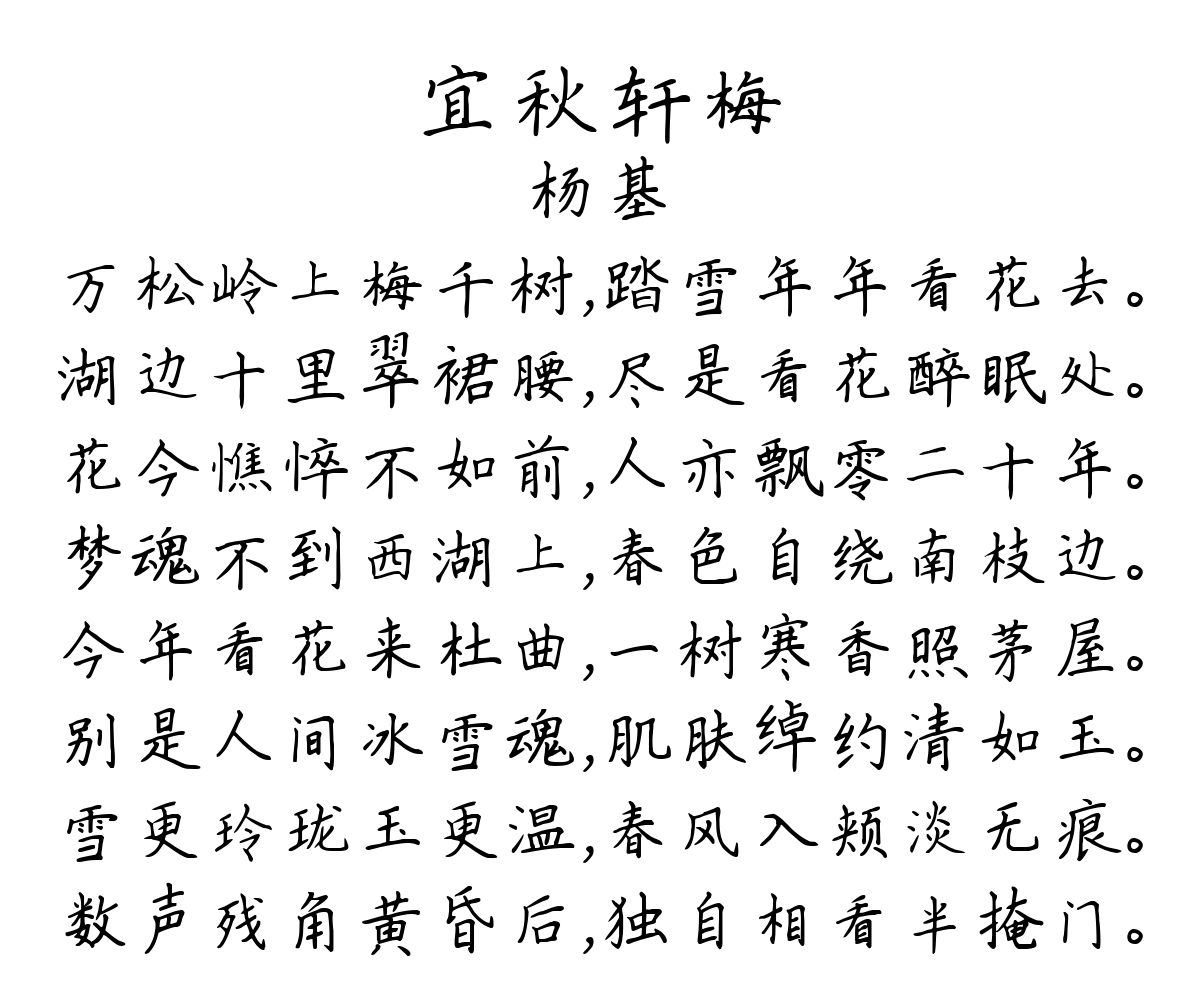 宜秋轩梅
杨基
万松岭上梅千树,踏雪年年看花去。
湖边十里翠裙腰,尽是看花醉眠处。
花今憔悴不如前,人亦飘零二十年。
梦魂不到西湖上,春色自绕南枝边。
今年看花来杜曲,一树寒香照茅屋。
别是人间冰雪魂,肌肤绰约清如玉。
雪更玲珑玉更温,春风入颊淡无痕。
数声残角黄昏后,独自相看半掩门。